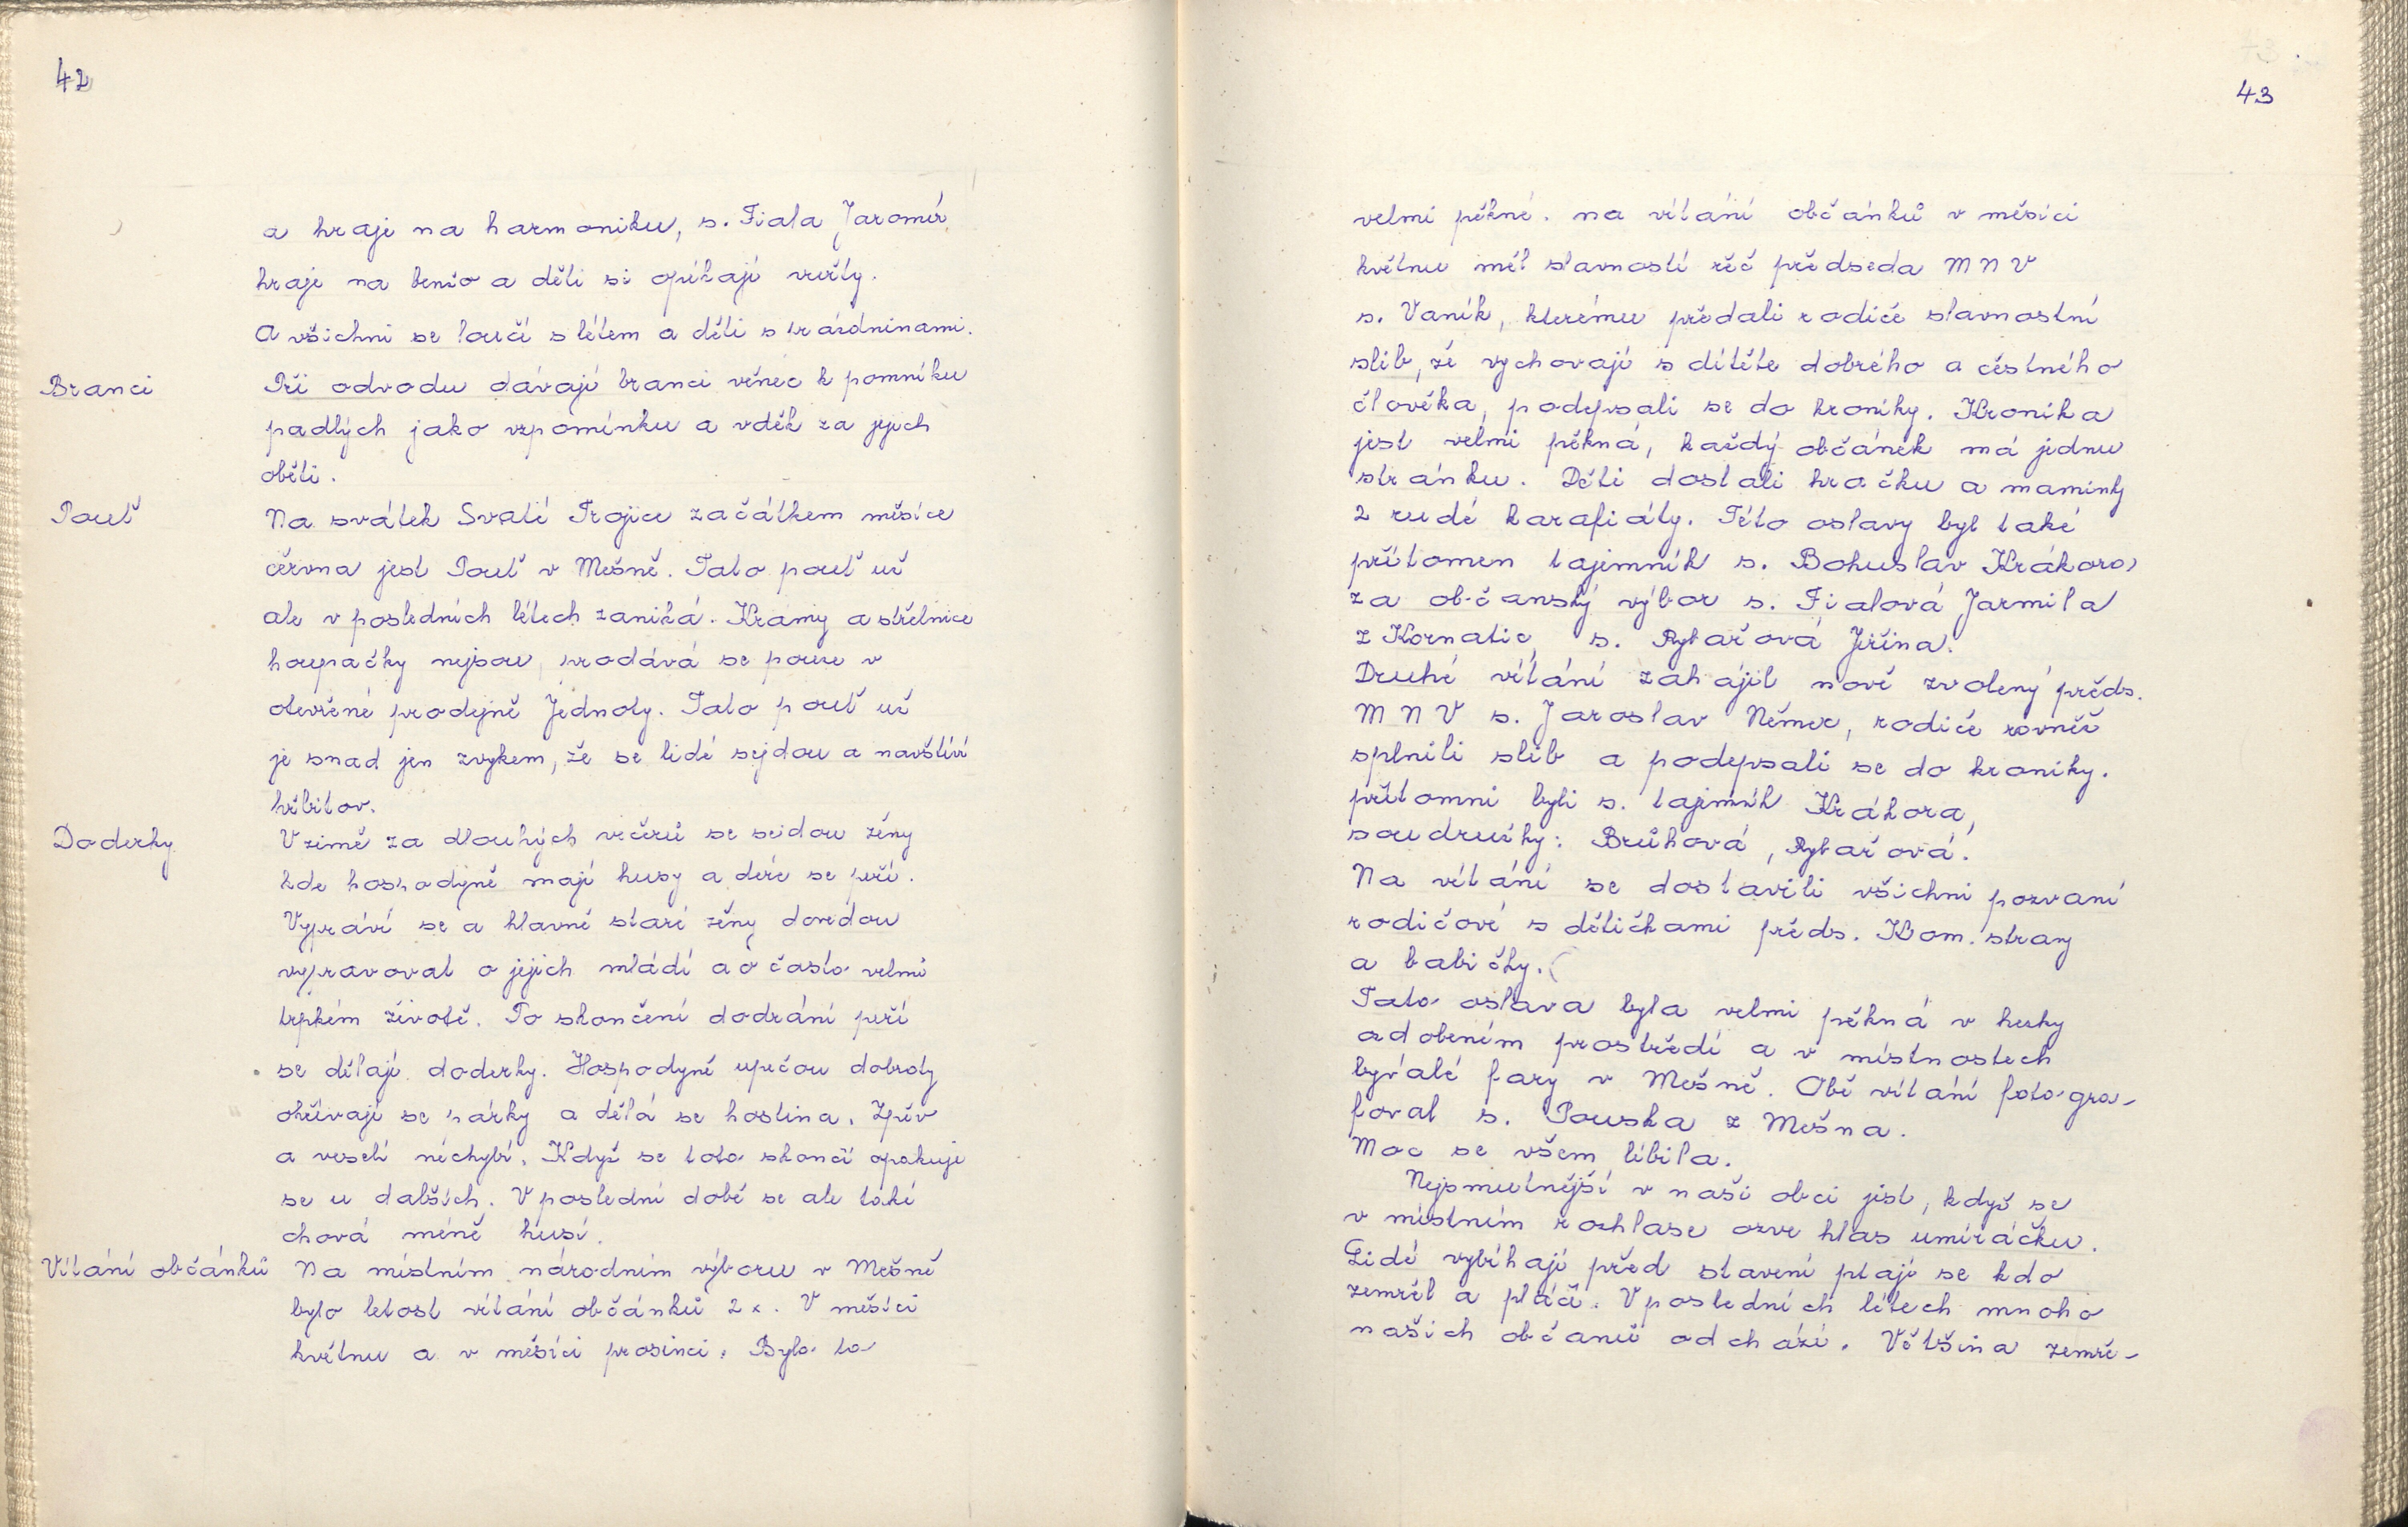 42
a hraje na harmoniku, s. Fiala Jaromír
hraje na benžo a děti si opékají vuřty.
A všichni se loučí s létem a děti s prázdninami.
Branci
Při odvodu dávají branci věnec k pomníku
padlých jako vzpomínku a vděk za jejich
oběti.
Pouť
Na svátek Svaté Trojice začátkem měsíce
června jest Pouť v Mešně. Tato pouť už
ale v posledních létech zaniká. Kramy a střelnice
houpačky nejsou, prodává se pouze v
otevřené prodejně Jednoty. Tato pouť už
je snad jen zvykem, že se lidé sejdou a navštíví
hřbitov.
Doderky
V zimě za dlouhých večerů se seidou ženy
kde hospodyně mají husy a dere se peří.
Vypráví se a hlavně staré ženy dovedou
vypravovat o jejich mládí a o často velmi
trpkém životě. Po skončení dodrání peří
se dělají doderky. Hospodyně upečou dobroty
ohřívají se párky a dělá se hostina. Zpěv
a veselí nechybí. Když se toto skončí opakuje
se u dalších. V poslední době se ale také
chová méně husí.
Vítání občánků
Na místním národním výboru v Mešně
bylo letost vítání občánků 2x. V měsíci
květnu a v měsíci prosinci. Bylo to
43
velmi pěkné. na vítání občánků v měsíci
květnu měl slavností řeč předseda MNV
s. Vaník, kterému předali rodiče slavnostní
slib, že vychovají s dítěte dobrého a čestného
člověka, podepsali se do kroniky. Kronika
jest velmi pěkná, každý občánek má jednu
stránku. Děti dostali hračku a maminky
2 rudé karafiáty. Této oslavy byl také
přítomen tajemník s. Bohuslav Krákora,
za občanský výbor s. Fialová Jarmila
z Kornatic, s. Rybařová Jiřina.
Druhé vítání zahájil nově zvolený předs.
MNV s. Jaroslav Němec, rodiče rovněž
splnili slib a podepsali se do kroniky.
přítomni byli s. tajemník Krákora,
soudružky: Brůhová, Rybařová.
Na vítání se dostavili všichni pozvaní
rodičové s dětičkami předs. Kom. strany
a babičky.
Tato oslava byla velmi pěkná v hezky
ozdobeném prostředí a v místnostech
bývalé fary v Mešně. Obě vítání fotogra-
foval s. Pouska z Mešna.
Moc se všem líbila.
Nejsmutnější v naší obci jest, když se
v místním rozhlase ozve hlas umíráčku.
Lidé vybíhají před stavení ptají se kdo
zemřel a pláčí. V posledních létech mnoho
našich občanů odchází. Většina zemře-